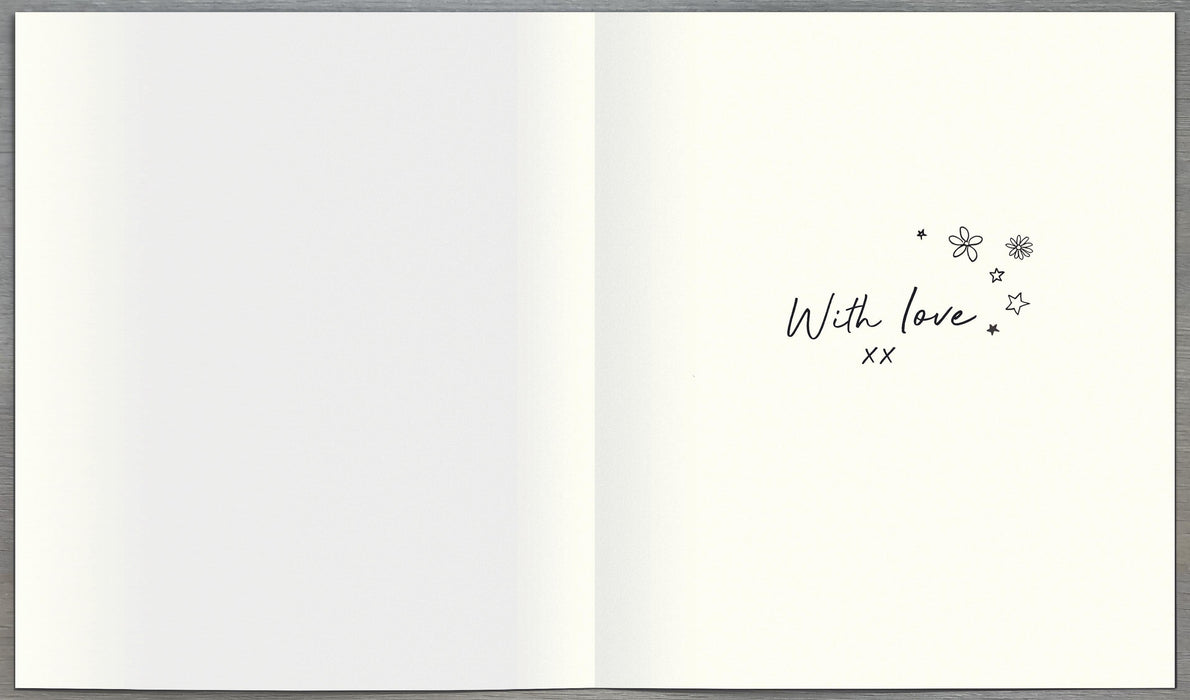 With love
xx